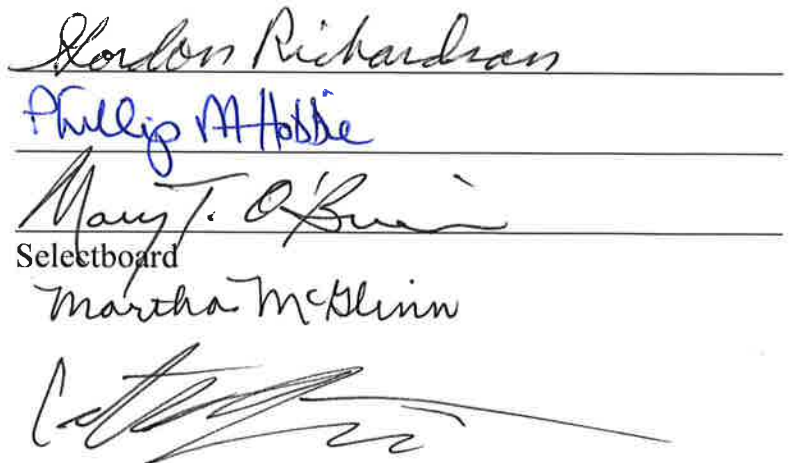 Gordon Richardson
Phillip M Hobbie
Mary T. O'Brien
Selectboard
Martha McGlinn